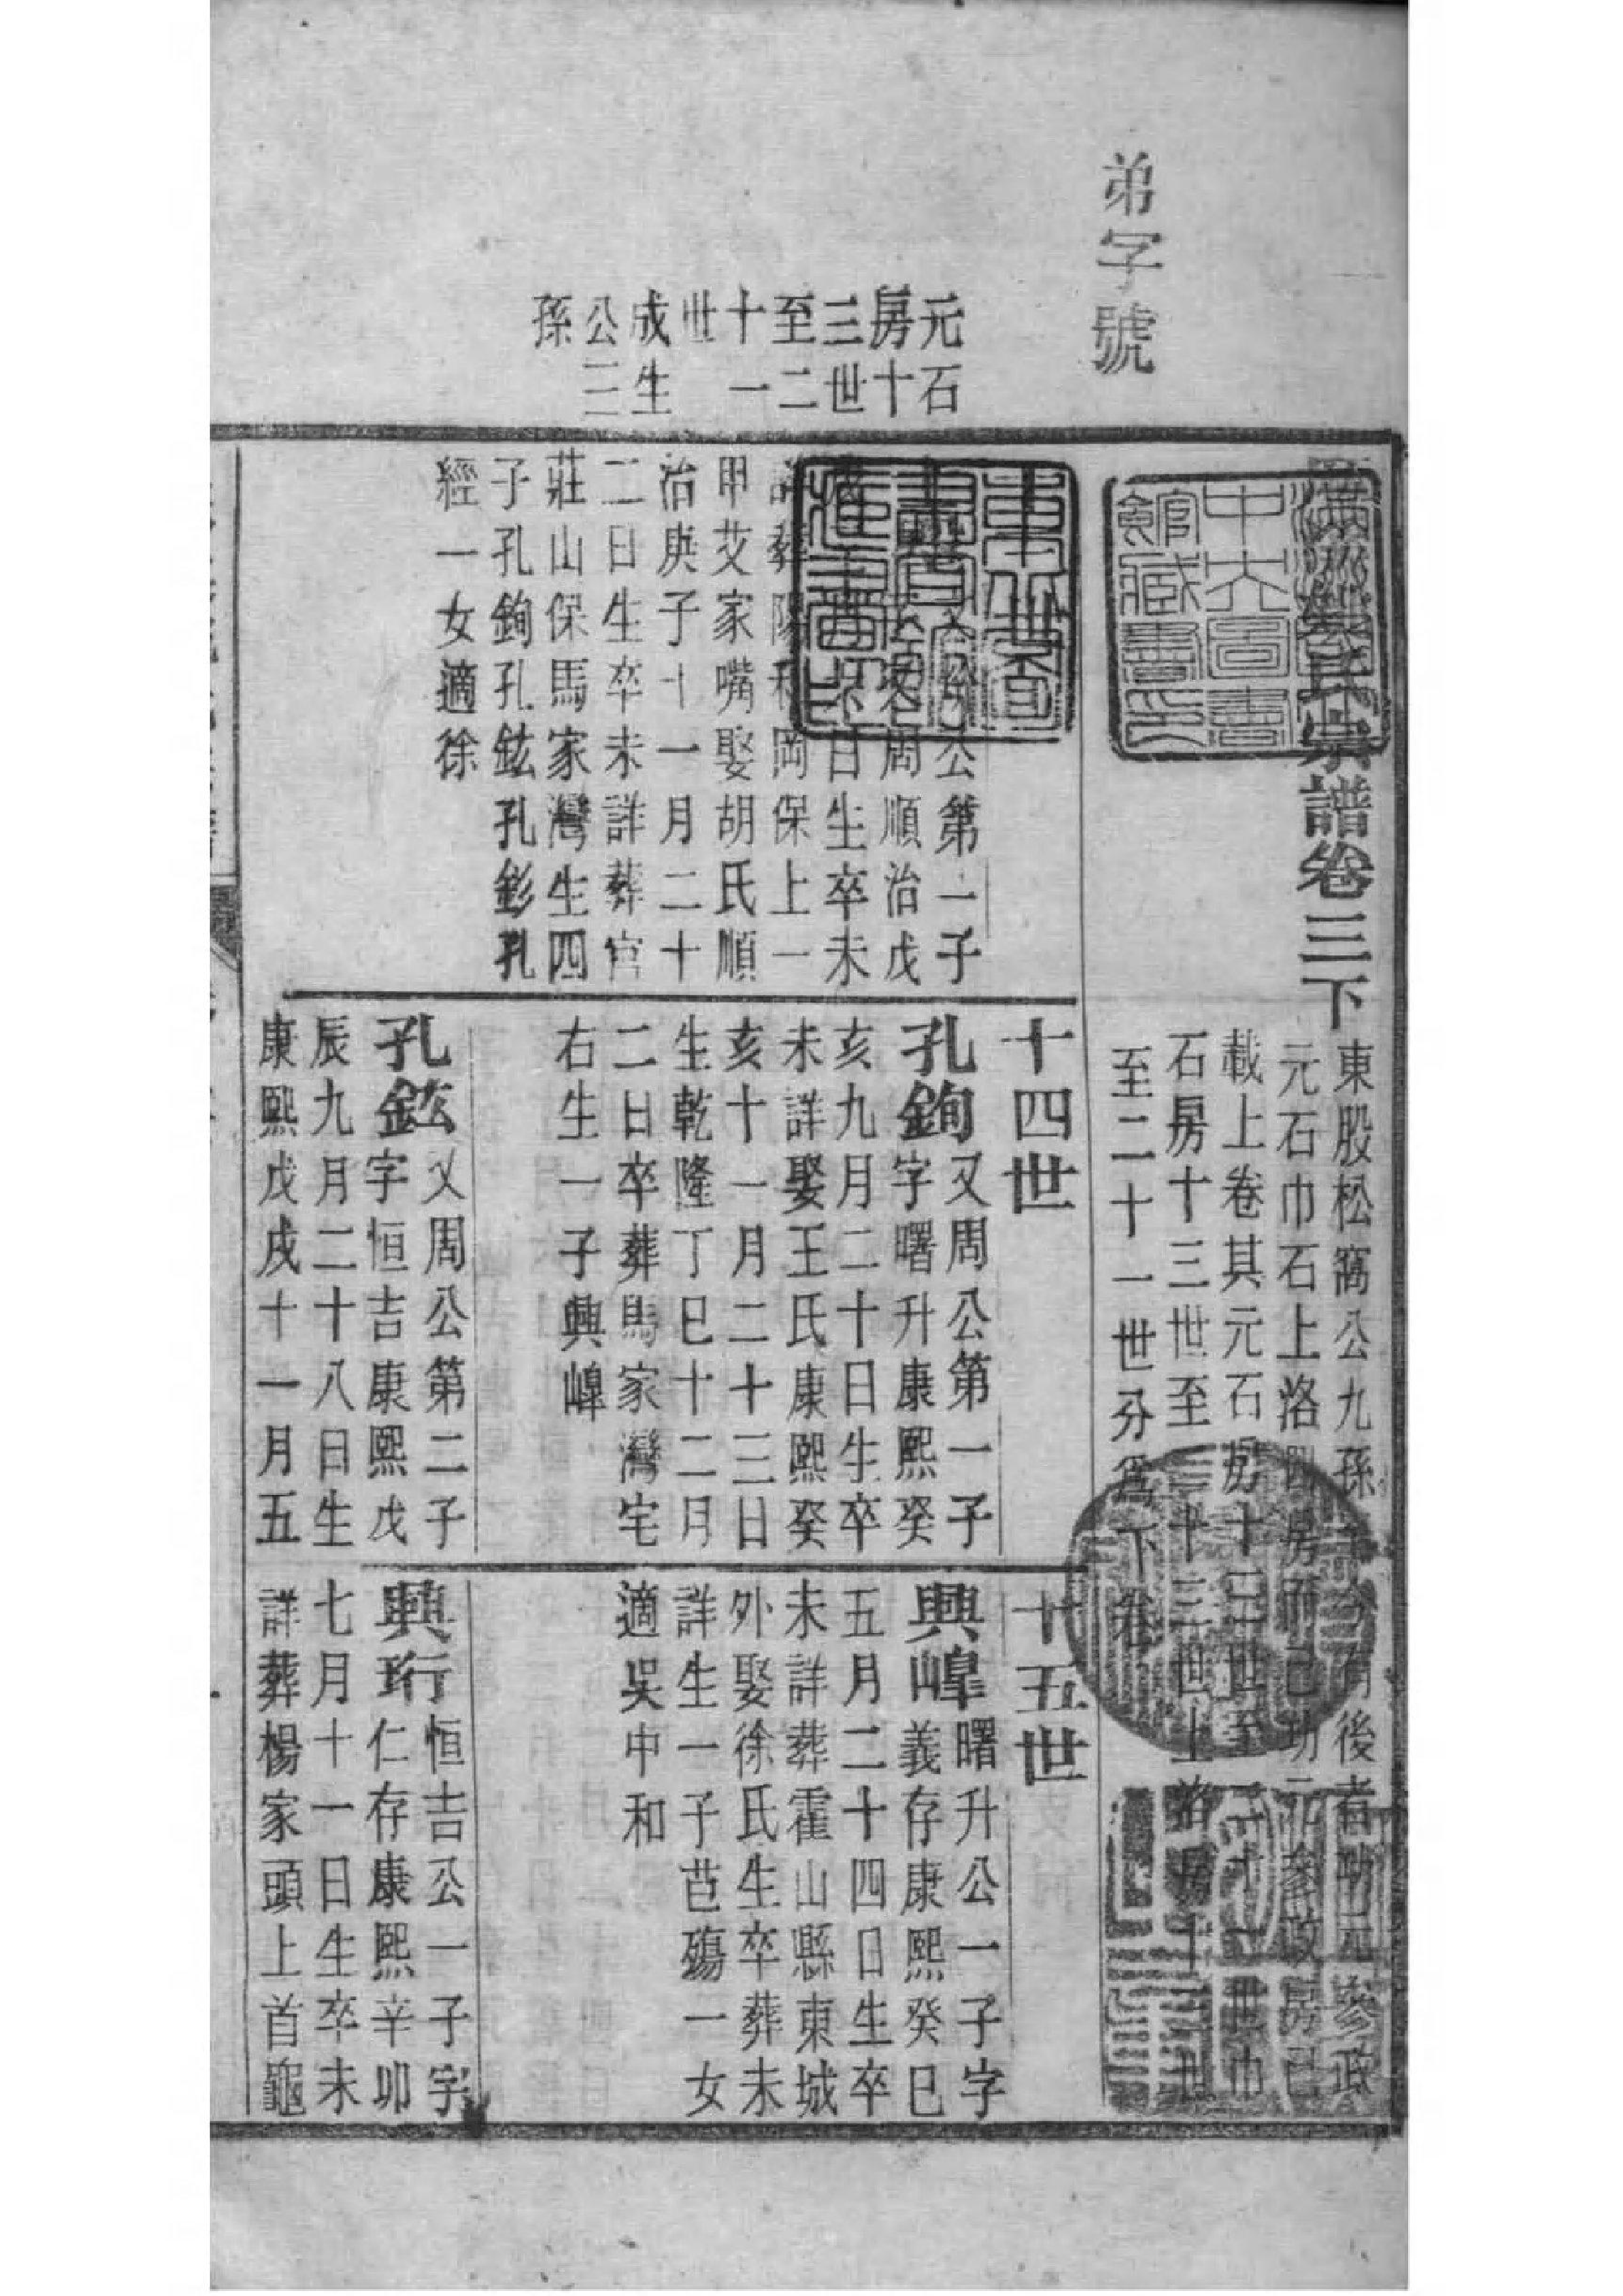 弟字號
元石
房十
三世
至二
十一
世
成生
公三
孫
氏宗譜卷三下
東股松窩公九孫
元石巾石上洛四房而已功元參政房已
載上卷其元石房十三世至二十一世巾
石房十三世至二十三世上洛房十三世
至二十一世分為下卷
公第一子
周順治戊
日生卒未
岡保上一
甲艾家嘴娶胡氏順
治庚子十一月二十
二日生卒未詳葬官
莊山保馬家灣生四
子孔銁孔鉉孔釤孔
經一女適徐
十四世
孔銁又周公第一子
字曙升康熙癸
亥九月二十日生卒
未詳娶王氏康熙癸
亥十一月二十三日
生乾隆丁巳十二月
二日卒葬馬家灣宅
右生一子興崲
孔鉉又周公第二子
字恒吉康熙戊
辰九月二十八日生
康熙戊戌十一月五
十五世
興崲曙升公一子字
義存康熙癸巳
五月二十四日生卒
未詳葬霍山縣東城
外娶徐氏生卒葬未
詳生一子芭殤一女
適吳中和
興珩恒吉公一子字
仁存康熙辛卯
七月十一日生卒未
詳葬楊家頭上首龜